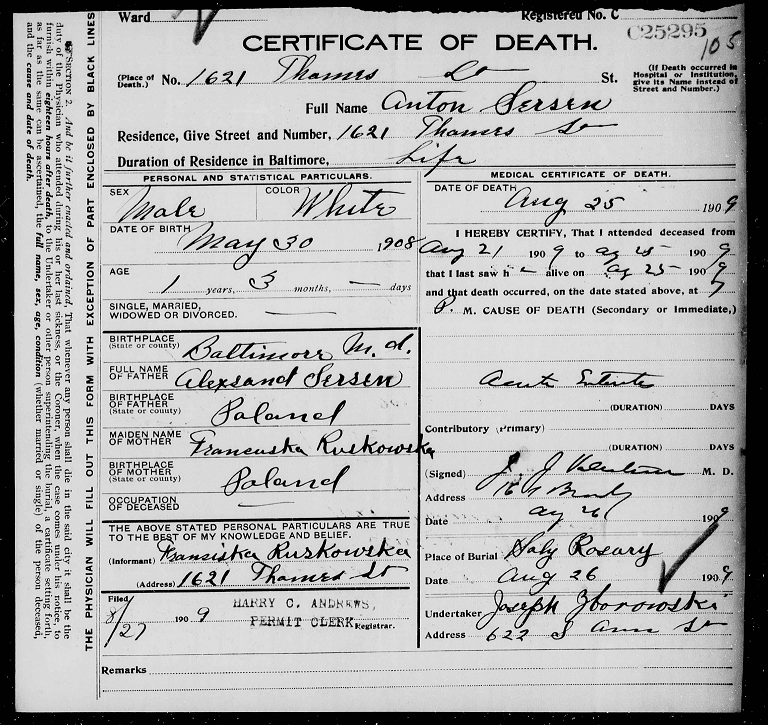 Ward
Registered No. C
C25295
105
CERTIFICATE OF DEATH.
(Place of Death.) No. 1621 Thames St St.
(If Death occurred in Hospital or Institution, give its Name instead of Street and Number.)
Full Name Anton Sersen
Residence, Give Street and Number, 1621 Thames St
Duration of Residence in Baltimore, Life
PERSONAL AND STATISTICAL PARTICULARS.
SEX Male COLOR White
DATE OF BIRTH May 30 1908
AGE 1 years, 3 months, — days
SINGLE, MARRIED,
WIDOWED OR DIVORCED.
BIRTHPLACE (State or county) Baltimore M.d.
FULL NAME OF FATHER Alexsand Sersen
BIRTHPLACE OF FATHER (State or county) Poland
MAIDEN NAME OF MOTHER Francuska Ruskowska
BIRTHPLACE OF MOTHER (State or county) Poland
OCCUPATION OF DECEASED
THE ABOVE STATED PERSONAL PARTICULARS ARE TRUE
TO THE BEST OF MY KNOWLEDGE AND BELIEF.
(Informant) Fransiska Ruskowska
(Address) 1621 Thames St
Filed 8/27 190 9
HARRY C. ANDREWS,
PERMIT CLERK Registrar.
MEDICAL CERTIFICATE OF DEATH.
DATE OF DEATH Aug 25 1909
I HEREBY CERTIFY, That I attended deceased from
Aug 21 190 9 to ag 25 190 9
that I last saw alive on ag 25 190 9
and that death occurred, on the date stated above, at 7
P. M. CAUSE OF DEATH (Secondary or Immediate,)
Acute
(DURATION) DAYS
Contributory (Primary)
(DURATION) DAYS
(Signed) J. J. M. D.
Address
Date ag 26 1909
Place of Burial Holy Rosary
Date Aug 26 1909
Undertaker Joseph Zborowski
Address 622 S Ann St
Remarks
THE PHYSICIAN WILL FILL OUT THIS FORM WITH EXCEPTION OF PART ENCLOSED BY BLACK LINES
SECTION 2. And be it further enacted and ordained, That whenever any person shall die in the said city it shall be the
duty of the Physician who attended during his or her last sickness, or the Coroner, when the case comes under his notice, to
furnish within eighteen hours after death, to the Undertaker or other person superintending the burial, a certificate setting forth,
as far as the same can be ascertained, the full name, sex, age, condition (whether married or single) of the person deceased,
and the cause and date of death.